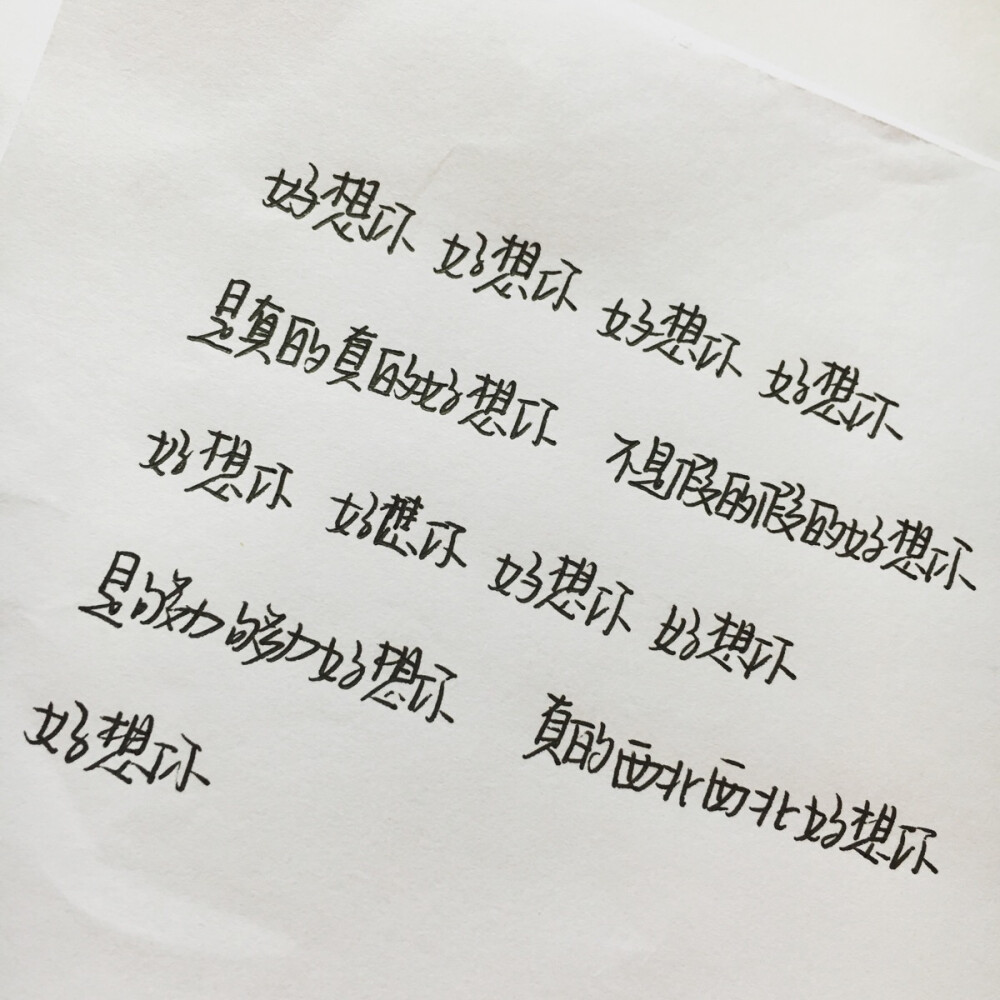 好想你 好想你 好想你 好想你
是真的真的好想你 不是假的假的好想你
好想你 好想你 好想你 好想你
是够力够力好想你 真的西北西北好想你
好想你